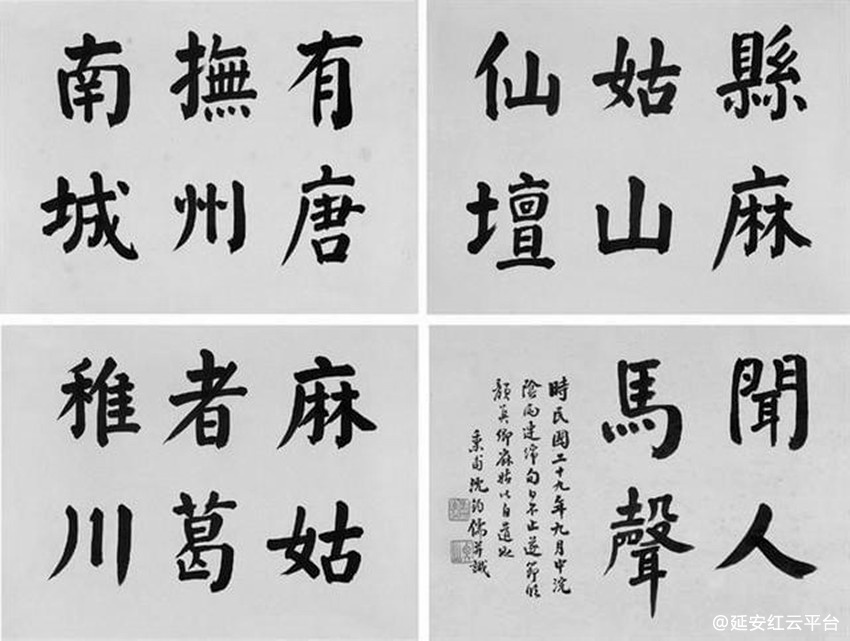 有唐
撫州
南城
縣麻
姑山
仙壇
麻姑
者葛
稚川
聞人
馬聲
時民國二十九年九月中浣
陰雨連綿旬日不止遂節臨
顏真卿麻姑以自遣
秉甫沈鈞儒并識
@延安红云平台